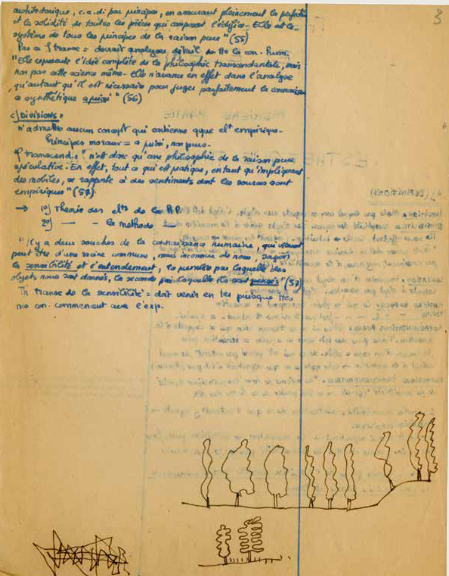 3
architectonique, c.a.d. par principes, en assurant pleinement la perfection
et la solidité de toutes les pièces qui composent l'édifice. Elle est le
système de tous les principes de la raison pure" (55)
Pas φ transc = devrait analyser détail de tte la con. Pure,
"Elle représente l'idée complète de la philosophie transcendantale, mais
non pas cette science même. Elle n'avance en effet dans l'analyse
qu'autant qu'il est nécessaire pour juger parfaitement la connaissance
synthétique a priori" (56)
c) Divisions:
n'admettre aucun concept qui contienne qque elt empirique.
Principes moraux = a priori, non purs.
φ transcend. "n'est donc qu'une philosophie de la raison pure
spéculative. En effet, tout ce qui est pratique, en tant qu'impliquent
des mobiles, se rapporte à des sentiments dont les sources sont
empiriques" (57)
→ 1°) Théorie des elts de la R.P.
2°) — — la méthode
"Il y a deux souches de la connaissance humaine, qui viennent
peut être d'une racine commune, mais inconnue de nous, savoir:
la sensibilité et l'entendement, la première par laquelle les
objets nous sont donnés, la seconde par laquelle ils sont pensés" (57)
Th transc de la sensibilité = doit venir en 1er puisque tte
con. commencent avec l'exp.